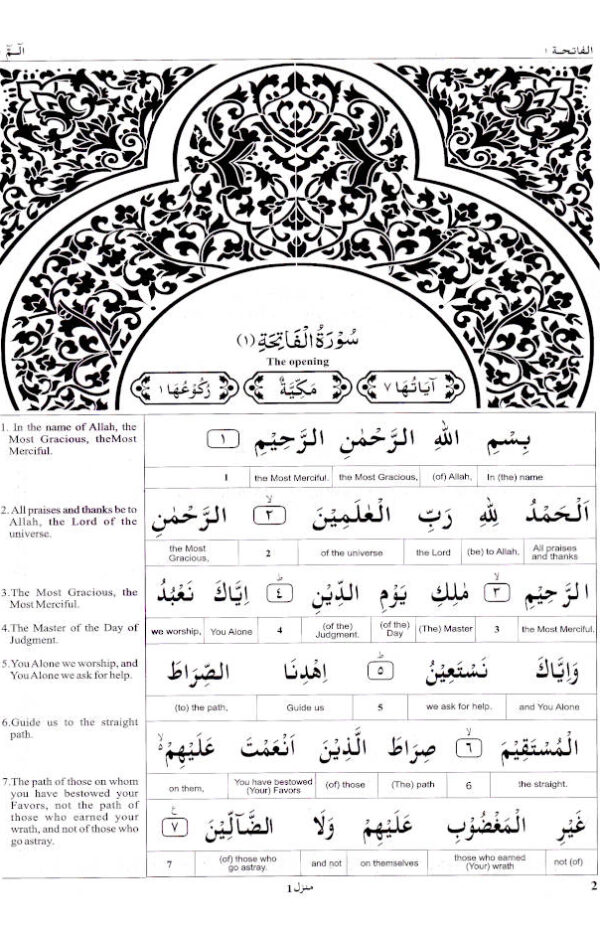 الٓمّٓ ١
الفاتحة ١
سُوْرَةُ الْفَاتِحَةِ (١)
The opening
اٰيَاتُهَا ٧ مَكِّيَّةٌ رُكُوْعُهَا ١
1. In the name of Allah, the
Most Gracious, theMost
Merciful.
2. All praises and thanks be to
Allah, the Lord of the
universe.
3.The Most Gracious, the
Most Merciful.
4.The Master of the Day of
Judgment.
5.You Alone we worship, and
You Alone we ask for help.
6.Guide us to the straight
path.
7.The path of those on whom
you have bestowed your
Favors, not the path of
those who earned your
wrath, and not of those who
go astray.
بِسْمِ اللهِ الرَّحْمٰنِ الرَّحِيْمِ ١
1 the Most Merciful. the Most Gracious, (of) Allah, In (the) name
اَلْحَمْدُ لِلّٰهِ رَبِّ الْعٰلَمِيْنَ ٢ الرَّحْمٰنِ
the Most Gracious, 2 of the universe the Lord (be) to Allah, All praises and thanks
الرَّحِيْمِ ٣ مٰلِكِ يَوْمِ الدِّيْنِ ٤ اِيَّاكَ نَعْبُدُ
we worship, You Alone 4 (of the) Judgment. (of the) Day (The) Master 3 the Most Merciful,
وَاِيَّاكَ نَسْتَعِيْنُ ٥ اِهْدِنَا الصِّرَاطَ
(to) the path, Guide us 5 we ask for help. and You Alone
الْمُسْتَقِيْمَ ٦ صِرَاطَ الَّذِيْنَ اَنْعَمْتَ عَلَيْهِمْ
on them, You have bestowed (Your) Favors (of) those (The) path 6 the straight.
غَيْرِ الْمَغْضُوْبِ عَلَيْهِمْ وَلَا الضَّآلِّيْنَ ٧
7 (of) those who go astray. and not on themselves those who earned (Your) wrath not (of)
منزل ١
2